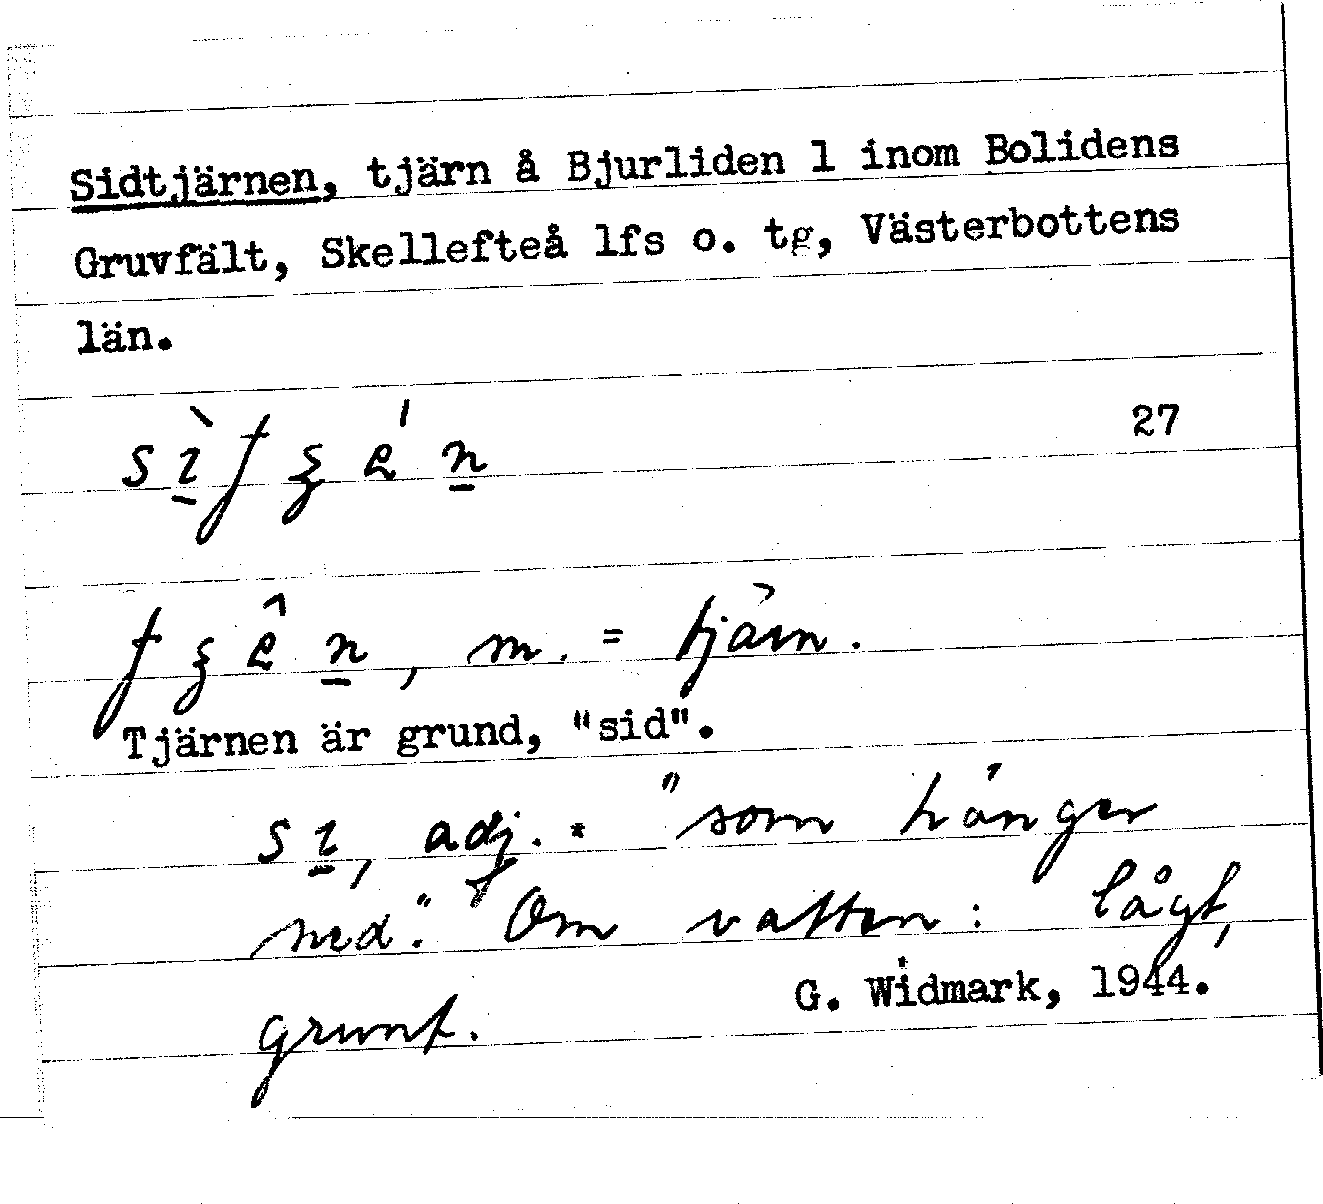 Sidtjärnen, tjärn å Bjurliden 1 inom Bolidens
Gruvfält, Skellefteå lfs o. tg, Västerbottens
län.
27
m. = tjärn.
Tjärnen är grund, "sid".
adj. = "som hänger
ned". Om vatten: lågt,
G. Widmark, 1944.
grunt.